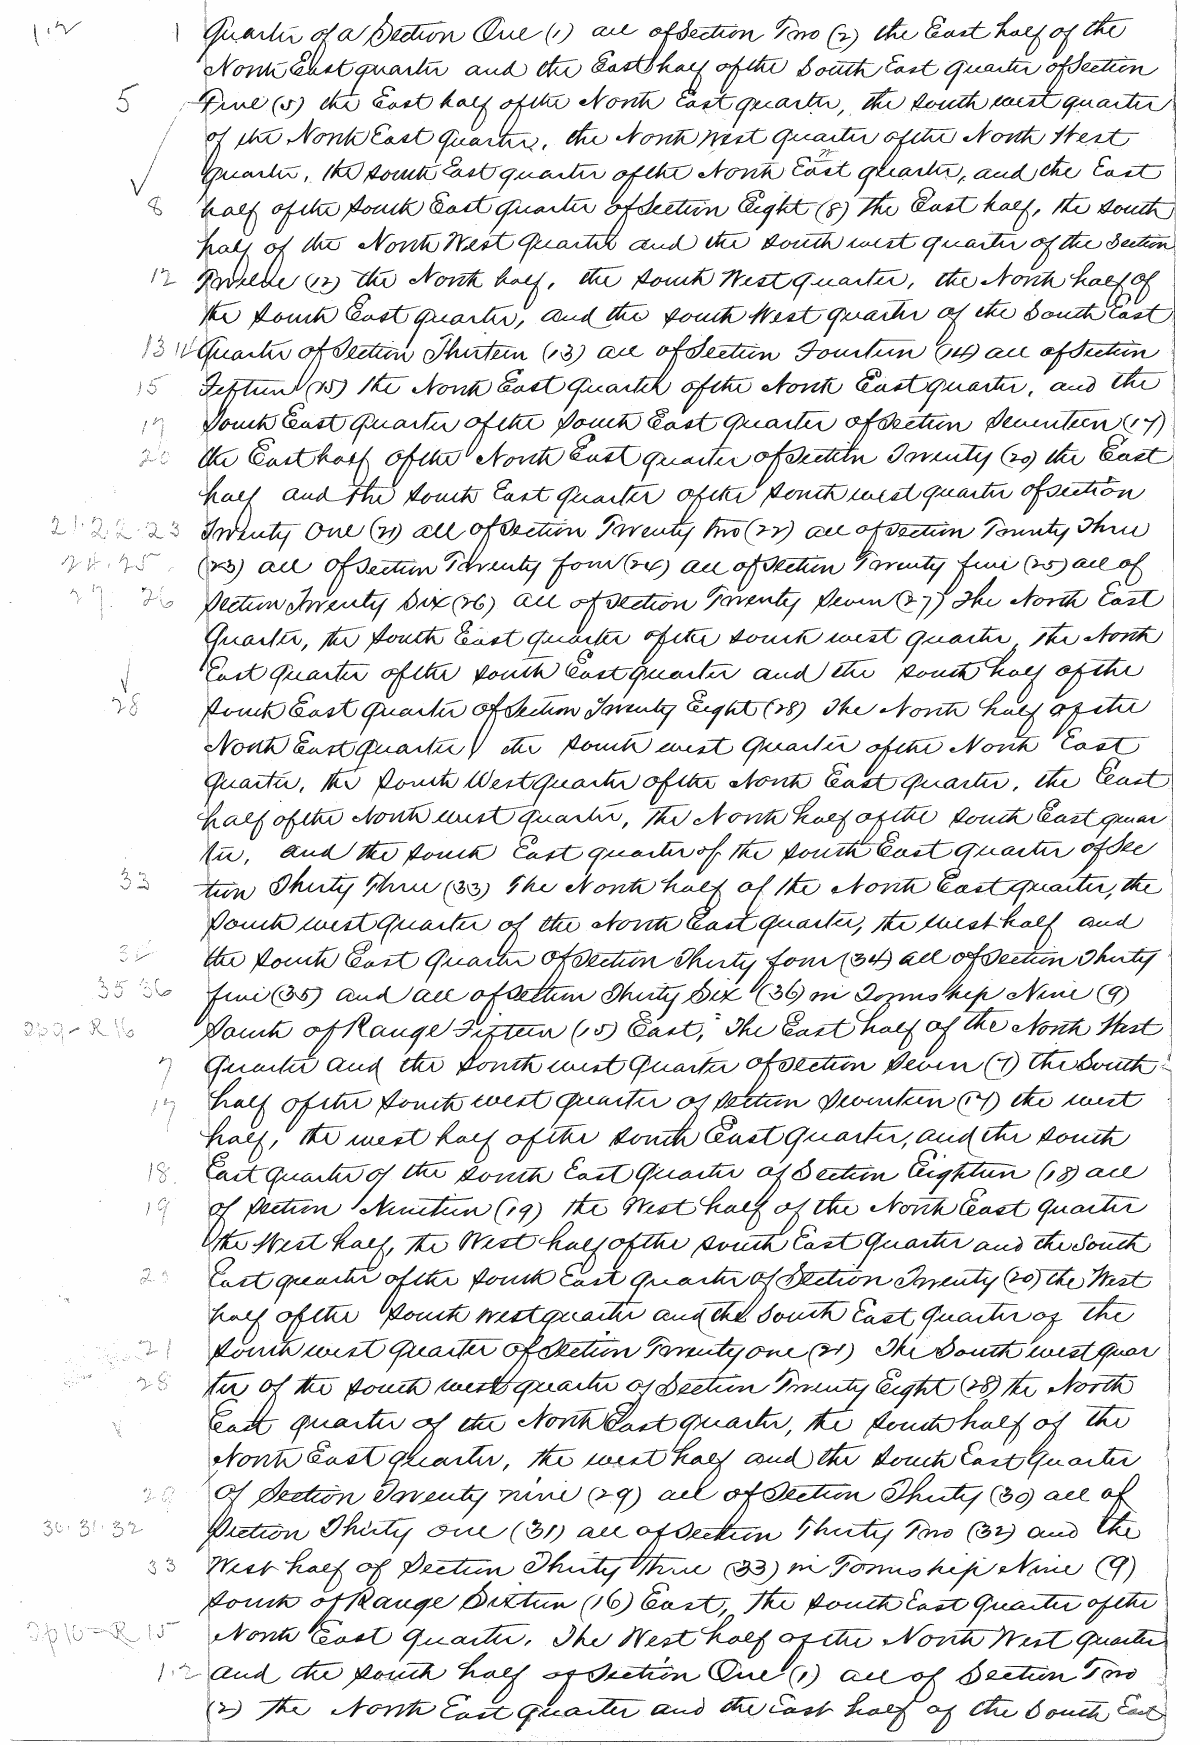 1.2 1 Quarter of a Section One (1) all of Section Two (2) the East half of the
North East quarter and the East half of the South East quarter of Section
5 Five (5) the East half of the North East quarter, the south west quarter
of the North East Quarter, the North West Quarter of the North West
Quarter, the south East quarter of the North East quarter, and the East
8 half of the South East quarter of Section Eight (8) the East half, the south
half of the North West Quarter and the south west quarter of the Section
12 Twelve (12) the North half, the south West quarter, the North half of
the South East quarter, and the south West quarter of the South East
13 14 Quarter of Section Thirteen (13) all of Section Fourteen (14) all of Section
15 Fifteen (15) the North East Quarter of the North East quarter, and the
17 South East Quarter of the South East Quarter of Section Seventeen (17)
20 the East half of the North East quarter of Section Twenty (20) the East
half and the South East Quarter of the South west quarter of section
21.22.23 Twenty One (21) all of Section Twenty two (22) all of Section Twenty Three
24.25 (23) all of Section Twenty four (24) all of Section Twenty five (25) all of
27. 26 Section Twenty Six (26) all of Section Twenty Seven (27) The North East
Quarter, the South East quarter of the south west quarter, the North
East Quarter of the south East quarter and the south half of the
28 South East Quarter of Section Twenty Eight (28) The North half of the
North East Quarter, the South west Quarter of the North East
Quarter, the South West quarter of the North East Quarter, the East
half of the North west quarter, the North half of the South East quar
ter, and the South East quarter of the South East Quarter of Sec
33 tion Thirty Three (33) The North half of the North East quarter, the
South west quarter of the North East quarter, the west half and
34 the South East Quarter of Section Thirty four (34) all of Section Thirty
35 36 five (35) and all of section Thirty Six (36) in Township Nine (9)
Tp 9 - R 16 South of Range Fifteen (15) East, The East half of the North West
7 Quarter and the South west Quarter of section Seven (7) the South
17 half of the South west quarter of section Seventeen (17) the west
half, the west half of the South East Quarter, and the South
18. East Quarter of the South East Quarter of Section Eighteen (18) all
19 of Section Nineteen (19) the West half of the North East quarter
the West half, the West half of the South East Quarter and the South
20 East quarter of the South East quarter of Section Twenty (20) the West
half of the South West quarter and the South East Quarter of the
21 South west Quarter of Section Twenty one (21) The South west quar
28 ter of the South west quarter of Section Twenty Eight (28) the North
East quarter of the North East quarter, the South half of the
North East quarter, the west half and the South East Quarter
29 of Section Twenty nine (29) all of Section Thirty (30) all of
30.31.32 Section Thirty one (31) all of section Thirty Two (32) and the
33 West half of Section Thirty three (33) in Township Nine (9)
South of Range Sixteen (16) East, the South East Quarter of the
Tp 10 - R 15 North East Quarter. The West half of the North West Quarter
1.2 and the South half of Section One (1) all of Section Two
(2) the North East Quarter and the East half of the South East